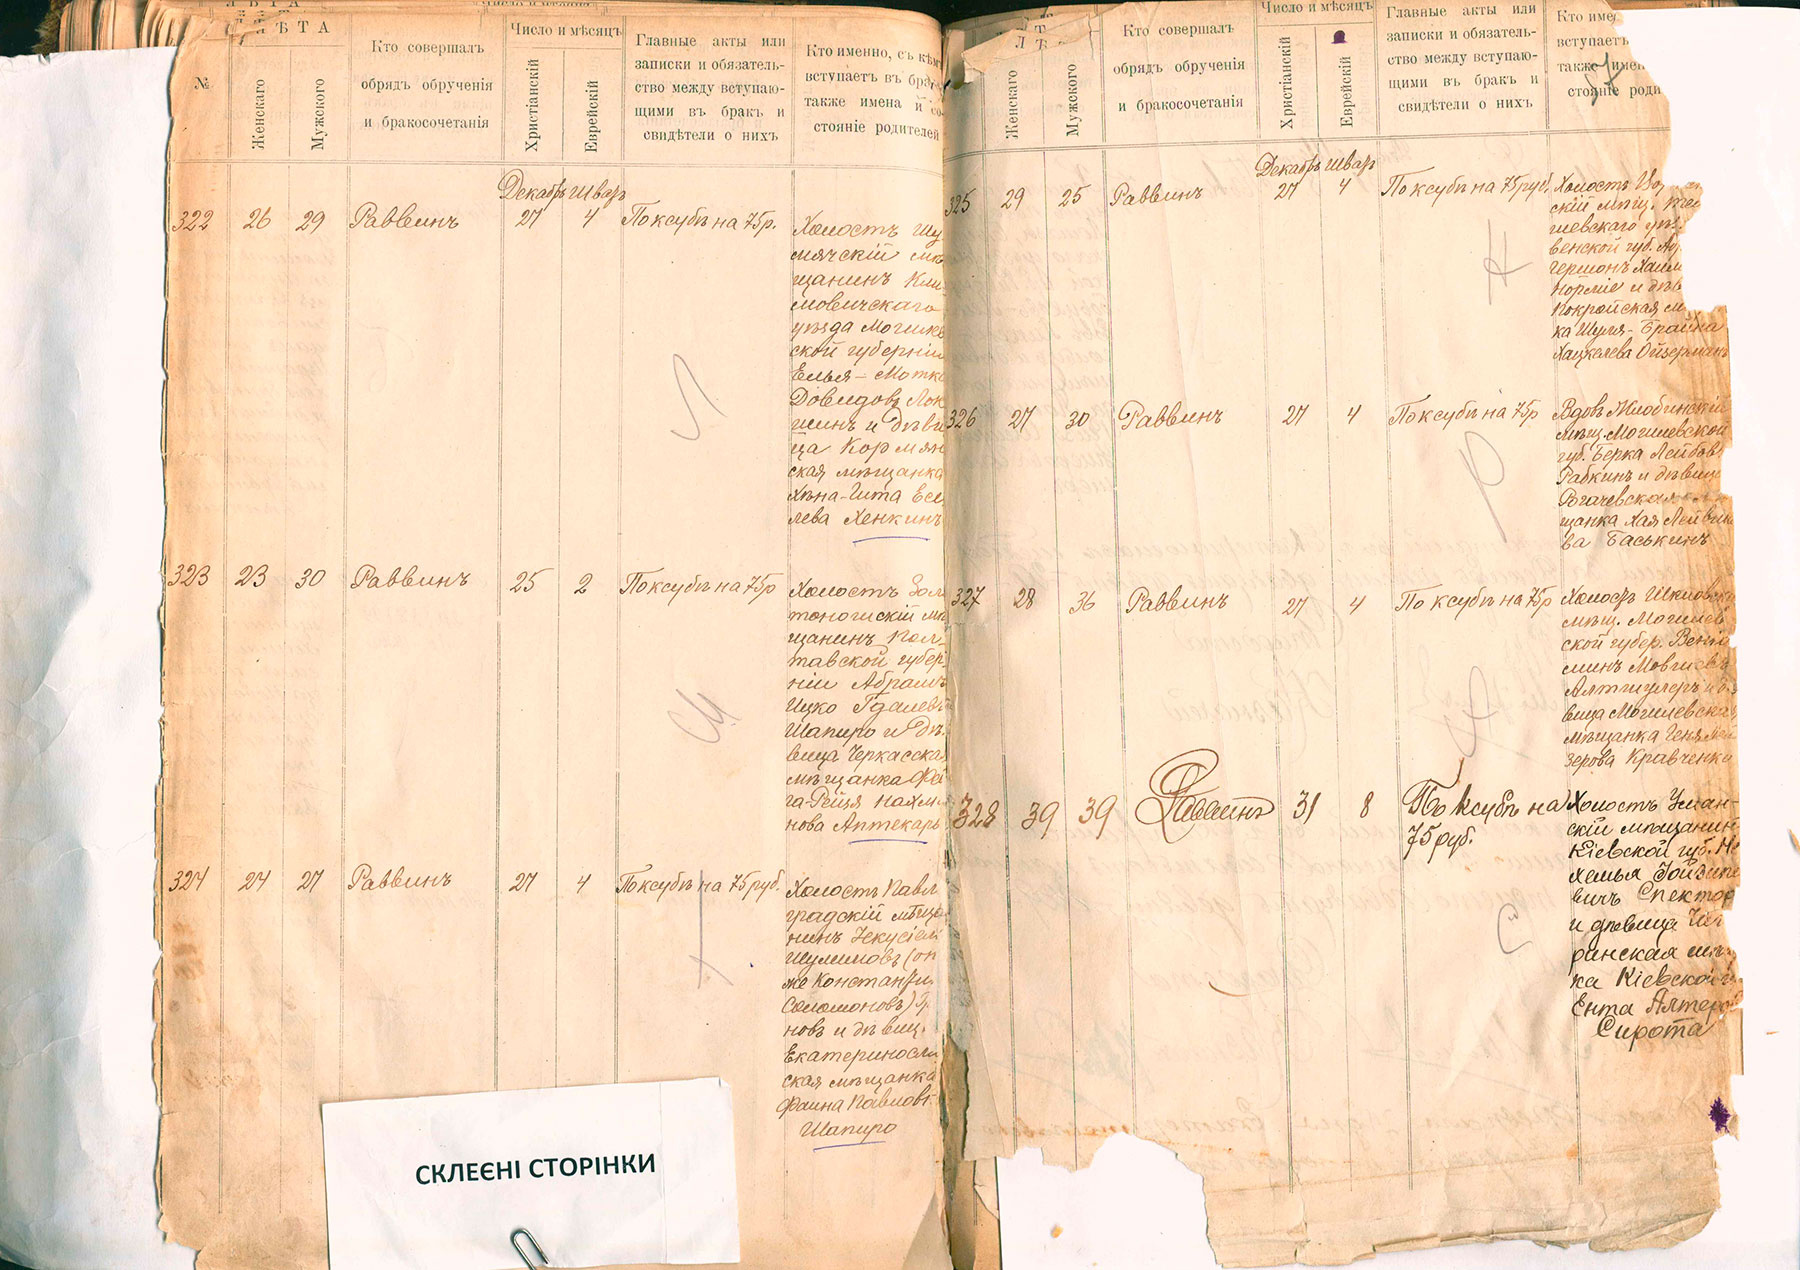 ЛѢТА
№
Женскаго
Мужского
Кто совершалъ
обрядъ обрученія
и бракосочетанія
Число и мѣсяцъ
Христіанскій
Еврейскій
Главные акты или
записки и обязатель-
ство между вступаю-
щими въ бракъ и
свидѣтели о нихъ
Кто именно, съ кѣмъ
вступаетъ въ бракъ
также имена и со-
стояніе родителей
Декабрь Шват
322 26 29 Раввинъ 27 4 По ксубѣ на 75 р.
Холостъ Шу
мячскій мѣ
щанинъ Кли
мовичскаго
уѣзда Могиле
ской губерніи
Елья-Мотко
Довидовъ
и дѣви
ца Кормян
ская мѣщанка
Хѣна-Гита Есе
лева Хенкинъ
323 23 30 Раввинъ 25 2 По ксубѣ на 75р
Холостъ Золо
тоношскій мѣ
щанинъ Пол
тавской губер
ніи Абрамъ
Ицко Гдалевъ
Шапиро и дѣ
вица Черкасская
мѣщанка Фей
га-Рейзя Нахма
нова Аптекарь
324 24 27 Раввинъ 27 4 По ксубѣ на 75 руб.
Холостъ Павло
градскій мѣща
нинъ Іекусіел
Шулимовъ (он
же Константин
Соломоновъ)
новъ и дѣвиц.
Екатеринослав
ская мѣщанка
Фаина Павлов
Шапиро
СКЛЕЄНІ СТОРІНКИ
Женскаго
Мужского
Кто совершалъ
обрядъ обрученія
и бракосочетанія
Число и мѣсяцъ
Христіанскій
Еврейскій
Главные акты или
записки и обязатель-
ство между вступаю-
щими въ бракъ и
свидѣтели о нихъ
Кто име
вступаетъ
также имен
стояніе роди
57
Декабрь Шват
325 29 25 Раввинъ 27 4 По ксубѣ на 75 руб.
Холостъ
скій мѣщ.
шевскаго уѣз.
венской губ.
Гершонъ Хаим
и дѣв
Кокройская м
ка Шуля-Брайна
Хацкелева Ойзерман
326 27 30 Раввинъ 27 4 По ксубѣ на 75р
Вдовъ Жлобинскій
мѣщ. Могилевской
губ. Берка Лейбов
Рабкинъ и дѣвица
Рогачевская м
щанка Хая
ва Баськинъ
327 28 36 Раввинъ 27 4 По ксубѣ на 75р
Холостъ Шкловск
мѣщ. Могилев
ской губер. Веніа
минъ Мовшевъ
Алтшулеръ и дѣ
вица Могилевская
мѣщанка Геня Лей
зерова Кравченко
328 39 39 Раввинъ 31 8 По ксубѣ на
75 руб.
Холостъ Уман-
скій мѣщанинъ
Кіевской губ. Не
хемья
вичъ Спектор
и дѣвица Чиги
ринская мѣщ
ка Кіевской г
Ента Алтеро
Сирота